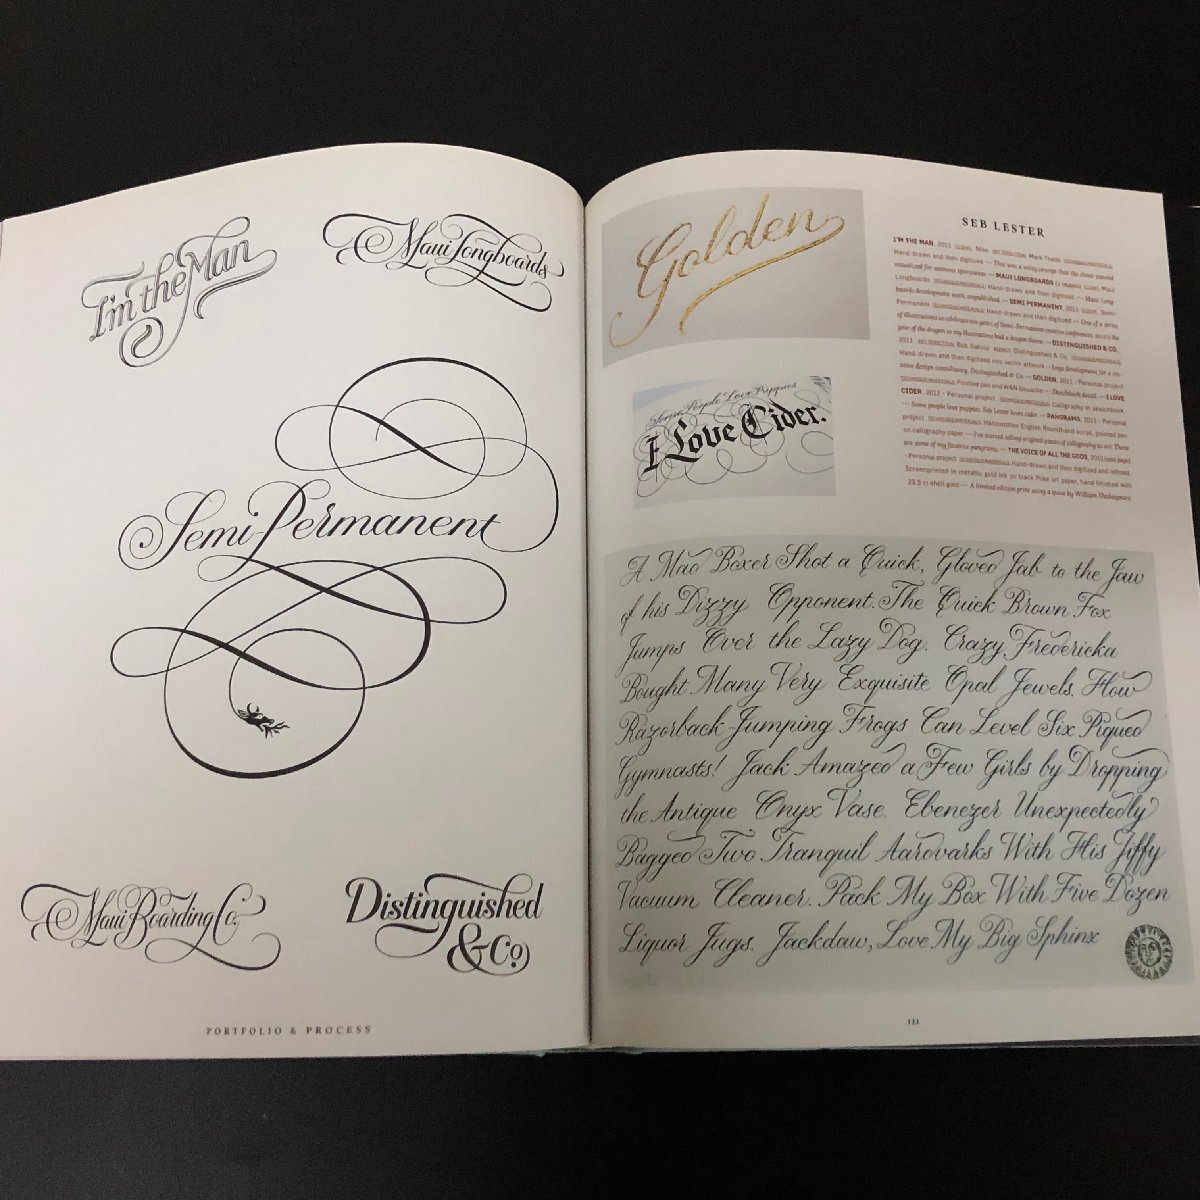 I'm the Man
Maui Longboards
Semi-Permanent
Maui Boarding Co.
Distinguished
& Co
PORTFOLIO & PROCESS
Golden
Some People Love Puppies
I Love Cider.
SEB LESTER
I'M THE MAN, 2011 CLIENT: Nike ART DIRECTION: Mark Thesis
Hand-drawn and then digitized — This was a wing concept that the client wanted
visualized for womens sportswear. — MAUI LONGBOARDS (2 images) CLIENT: Maui
Longboards Hand-drawn and then digitized — Maui Long-
boards development work, unpublished. — SEMI PERMANENT, 2012 CLIENT: Semi-
Permanent Hand-drawn and then digitized — One of a series
of illustrations to celebrate ten years of Semi-Permanent creative conferences, 2012 is the
year of the dragon so my illustrations had a dragon theme — DISTENGUISHED & CO,
2011 ART DIRECTION: Bob Sakoui Distinguished & Co.
Hand-drawn and then digitized into vector artwork — Logo development for a cre-
ative design consultancy, Distinguished & Co. — GOLDEN, 2011 · Personal project
Pointed pen and W&N Gouache — Sketchbook detail. — I LOVE
CIDER, 2012 · Personal project Calligraphy in sketchbook
— Some people love puppies. Seb Lester loves cider. — PANGRAMS, 2011 · Personal
project Handwritten English Roundhand script, pointed pen
on calligraphy paper — I've started selling original pieces of calligraphy as art. These
are some of my favorite pangrams. — THE VOICE OF ALL THE GODS, 2012 (next page)
· Personal project Hand-drawn and then digitized and refined.
Screenprinted in metallic gold ink on black Plike art paper, hand finished with
23.5 ct shell gold — A limited edition print using a quote by William Shakespeare
A Mad Boxer Shot a Quick, Gloved Jab to the Jaw
of his Dizzy Opponent. The Quick Brown Fox
Jumps Over the Lazy Dog. Crazy Fredericka
Bought Many Very Exquisite Opal Jewels. How
Razorback-Jumping Frogs Can Level Six Piqued
Gymnasts! Jack Amazed a Few Girls by Dropping
the Antique Onyx Vase. Ebenezer Unexpectedly
Bagged Two Tranquil Aardvarks With His Jiffy
Vacuum Cleaner. Pack My Box With Five Dozen
Liquor Jugs. Jackdaw, Love My Big Sphinx
121